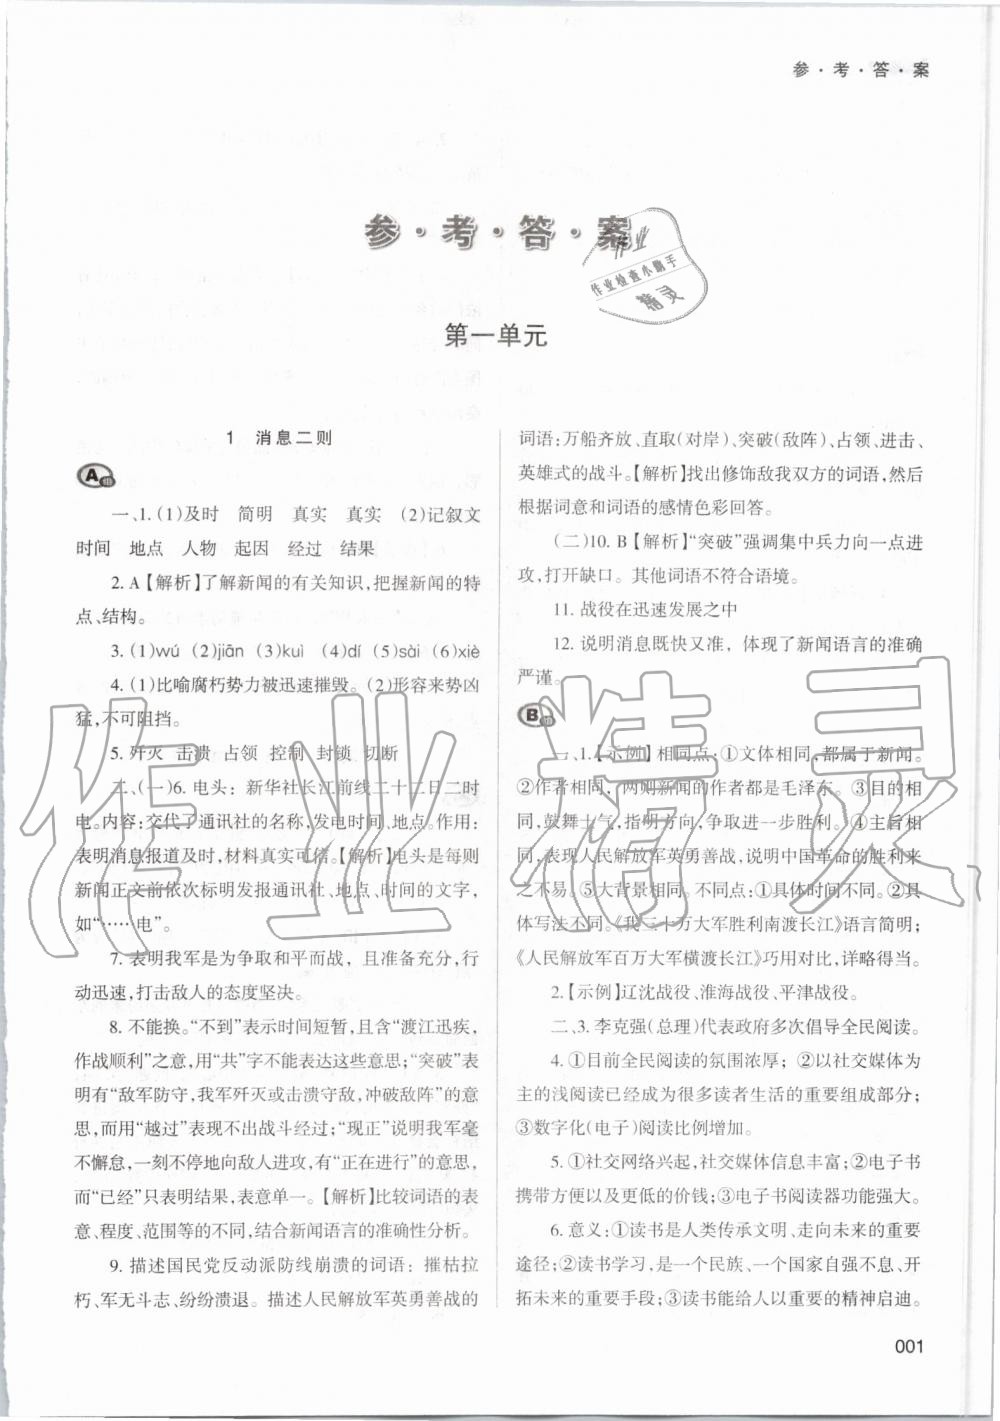 参·考·答·案
参·考·答·案
作业
作业检查小助手
精灵
第一单元
1 消息二则
A
一、1.(1)及时 简明 真实 真实 (2)记叙文
时间 地点 人物 起因 经过 结果
2. A【解析】了解新闻的有关知识,把握新闻的特
点、结构。
3. (1)wú (2)jiān (3)kuì (4)dí (5)sài (6)xiè
4. (1)比喻腐朽势力被迅速摧毁。(2)形容来势凶
猛,不可阻挡。
5. 歼灭 击溃 占领 控制 封锁 切断
二、(一)6. 电头：新华社长江前线二十二日二时
电。内容:交代了通讯社的名称,发电时间、地点。作用：
表明消息报道及时,材料真实可信。【解析】电头是每则
新闻正文前依次标明发报通讯社、地点、时间的文字,
如“……电”。
7. 表明我军是为争取和平而战，且准备充分,行
动迅速,打击敌人的态度坚决。
8. 不能换。“不到”表示时间短暂,且含“渡江迅疾,
作战顺利”之意,用“共”字不能表达这些意思;“突破”表
明有“敌军防守,我军歼灭或击溃守敌,冲破敌阵”的意
思,而用“越过”表现不出战斗经过;“现正”说明我军毫
不懈怠,一刻不停地向敌人进攻,有“正在进行”的意思,
而“已经”只表明结果,表意单一。【解析】比较词语的表
意、程度、范围等的不同,结合新闻语言的准确性分析。
9. 描述国民党反动派防线崩溃的词语：摧枯拉
朽、军无斗志、纷纷溃退。描述人民解放军英勇善战的
词语:万船齐放、直取(对岸)、突破(敌阵)、占领、进击、
英雄式的战斗。【解析】找出修饰敌我双方的词语,然后
根据词意和词语的感情色彩回答。
(二)10. B【解析】“突破”强调集中兵力向一点进
攻,打开缺口。其他词语不符合语境。
11. 战役在迅速发展之中
12. 说明消息既快又准，体现了新闻语言的准确
严谨。
B
一、1.【示例】相同点:①文体相同,都属于新闻。
②作者相同，两则新闻的作者都是毛泽东。③目的相
同,鼓舞士气,指明方向,争取进一步胜利。④主旨相
同,表现人民解放军英勇善战,说明中国革命的胜利来
之不易。⑤大背景相同。不同点:①具体时间不同。②具
体写法不同。《我三十万大军胜利南渡长江》语言简明;
《人民解放军百万大军横渡长江》巧用对比,详略得当。
2.【示例】辽沈战役、淮海战役、平津战役。
二、3. 李克强(总理)代表政府多次倡导全民阅读。
4. ①目前全民阅读的氛围浓厚；②以社交媒体为
主的浅阅读已经成为很多读者生活的重要组成部分;
③数字化(电子)阅读比例增加。
5. ①社交网络兴起,社交媒体信息丰富;②电子书
携带方便以及更低的价钱;③电子书阅读器功能强大。
6. 意义:①读书是人类传承文明、走向未来的重要
途径;②读书学习，是一个民族、一个国家自强不息、开
拓未来的重要手段;③读书能给人以重要的精神启迪。
001
作业精灵